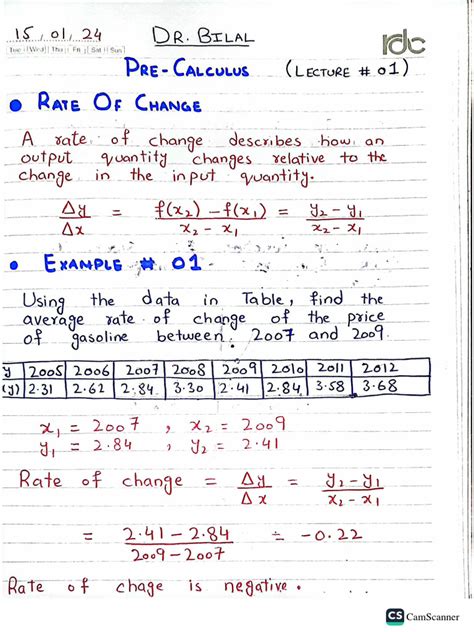 15/01/24 DR. BILAL rdc
Tue Wed Thu Fri Sat Sun
PRE-CALCULUS (LECTURE # 01)
• RATE OF CHANGE
A rate of change describes how an
output quantity changes relative to the
change in the input quantity.
Δy/Δx = f(x₂) - f(x₁)/x₂ - x₁ = y₂ - y₁/x₂ - x₁
• EXAMPLE # 01
Using the data in Table, find the
average rate of change of the price
of gasoline between, 2007 and 2009.
y 2005 2006 2007 2008 2009 2010 2011 2012
(y) 2.31 2.62 2.84 3.30 2.41 2.84 3.58 3.68
x₁ = 2007 , x₂ = 2009
y₁ = 2.84 , y₂ = 2.41
Rate of change = Δy/Δx = y₂ - y₁/x₂ - x₁
= 2.41 - 2.84/2009 - 2007 = -0.22
Rate of chage is negative.
CS CamScanner